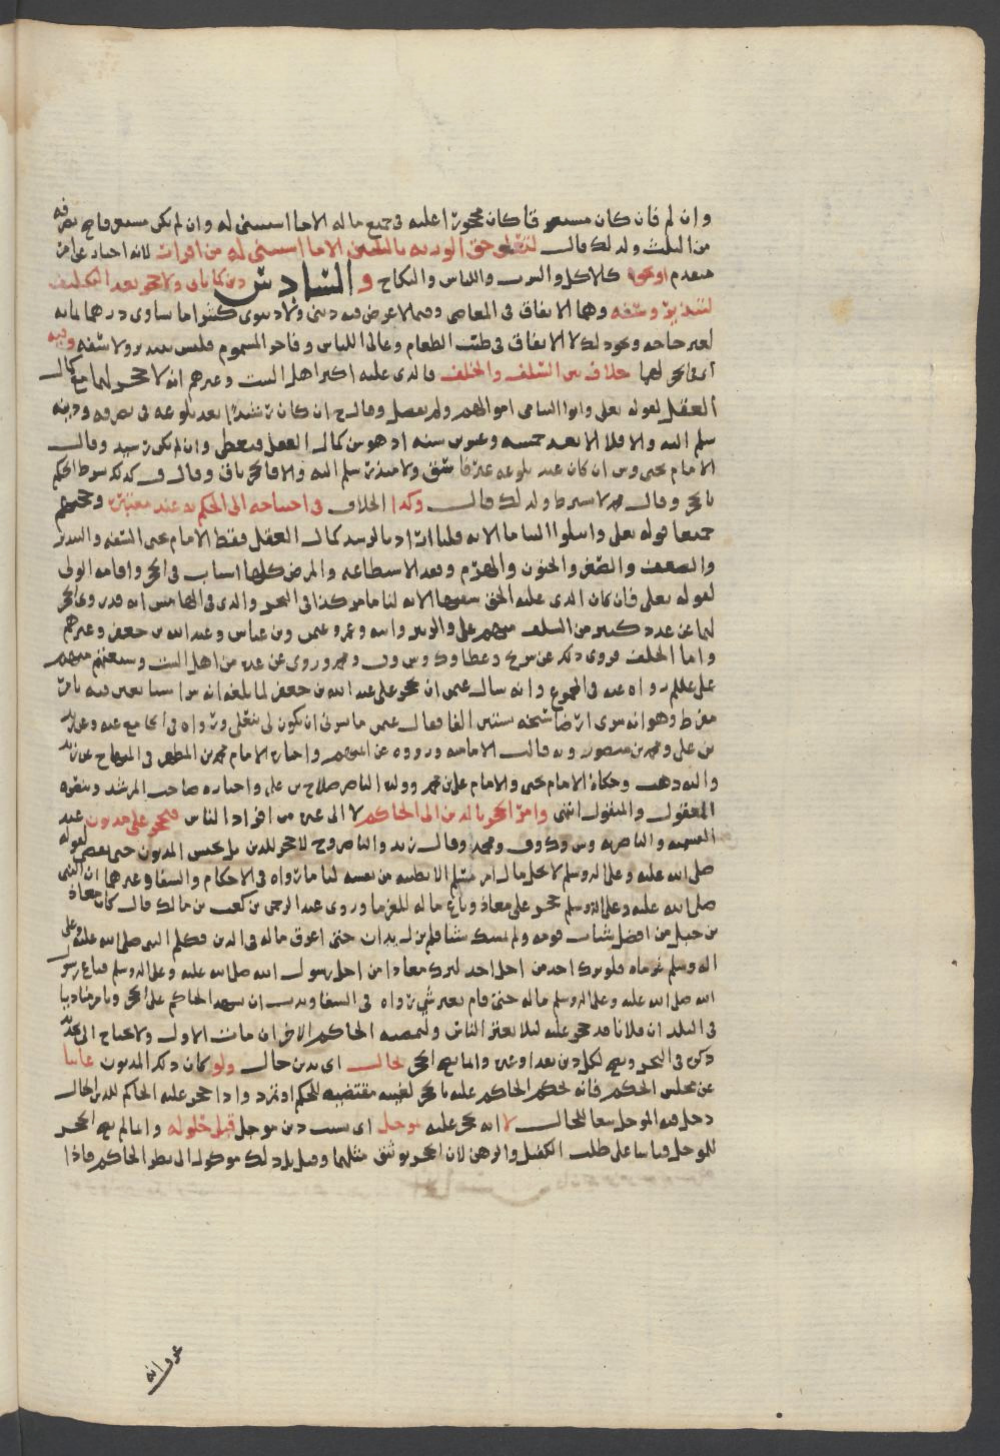 وان لم فان كان مستغرقا كان محجورا عليه في جميع ماله الا ما استثني له وان لم يكن مستغرقا صح تصرفه
من الثلث ولذلك قال لتعلق حق الورثة بالعين الا ما استثني له من اقوات لانه اخبار عن امر
متقدم كالاكل والشرب واللباس والنكاح و السادس دين كما ياتي ولا حجر بعد التكليف
لتبذير وسفه وهما الانفاق في المعاصي وفيما لا عرض فيه ديني ولا دنيوي كشرا ما يساوي درهما بمايه
لغير حاجه ونحو ذلك لا الانفاق في طيب الطعام وغالي اللباس وفاخر المشموم فليس بتبذير ولا سفه وفيه
اي في الحجر لهما خلاف بين السلف والخلف فالذي عليه اكثر اهل البيت وغيرهم انه لا حجر لهما مع كمال
العقل لقوله تعالى واتوا اليتامى اموالهم ولم يفصل وقال ح ان كان رشيدا بعد بلوغه في تصرفه ودينه
سلم اليه والا فلا الا بعد خمسه وعشرين سنه اذ هو سن كمال العقل فيعطى وان لم يكن رشيد وقال
الامام يحيى وش ان كان عند بلوغه غير فاسق ولا مبذر سلم اليه والا فالحجر باق وقال ف كذلك بشرط الحكم
بالحجر وقال محمد لا يشترط ولذلك قال وكذا الخلاف في احتياجه الى الحكم به عند معتبره وحجتهم
جميعا قوله تعالى وابتلوا اليتامى الايه قلنا اراد بالرشد كمال العقل فقط الامام يحيى السفه والتبذير
والضعف والصغر والجنون والهرم وفقد الاستطاعه والمرض كلها اسباب في الحجر واقامه الولي
لقوله تعالى فان كان الذي عليه الحق سفيها الايه لنا ما مر كذا في البحر والذي في الهامش انه قد روي الحجر
لهما عن عدد كثير من السلف منهم علي والزبير وابنه وعمر وعثمن وبن عباس وعبد الله بن جعفر وغيرهم
واما الخلف فروي ذلك عن شريح وعطا وك وش وف ومحمد وروي عن عده من اهل البيت وشيعتهم منهم
علي عليلم رواه عنه في المجموع وانه سال عثمن ان يحجر على عبد الله بن جعفر لما بلغه انه شرا شيا بغبن فيه بامر
مفرط وهو انه شرى ارضا سبخه بستين الفا فقال عثمن ما يسرني ان تكون لي بنعلي ورواه في الجامع عنه وعن زيد
بن علي ومحمد بن منصور وبه قالت الاماميه ورووه عن ائمتهم واختاره الامام محمد بن المطهر في المنهاج عن زيد
واليه ذهب وحكاه الامام يحيى والامام علي بن محمد وولده الناصر صلاح بن علي واختاره صاحب المرشد ومقوه
المعقول والمنقول انتهى وامر الحجر بالدين الى الحاكم لا الى غيره من افراد الناس فيحجر على مديون عند
القسميه والناصريه وش وك وف ومحمد وقال زيد والناصر وح لا حجر للدين بل يحبس المديون حتى يقضي لقوله
صلى الله عليه وعلى اله وسلم لا يحل مال امر مسلم الا بطيبه من نفسه لنا ما رواه في الاحكام والشفا وغيرهما ان النبي
صلى الله عليه وعلى اله وسلم حجر على معاذ وباع ماله للغرما وروى عبد الرحمن بن كعب بن مالك قال كان معاذ
بن جبل من افضل شباب قومه ولم يمسك شيا فلم يزل يدان حتى اغرق ماله في الدين فكلم النبي صلى الله عليه وعلى
اله وسلم غرماه فلو ترك احد من اجل احد لترك معاذا من اجل رسول الله صلى الله عليه وعلى اله وسلم فباع رسول
الله صلى الله عليه وعلى اله وسلم ماله حتى قام بغير شي رواه في الشفا ويندب ان يشهد الحاكم على الحجر ويامر مناديا
في البلد ان فلانا قد حجر عليه ليلا يغتر الناس وليمضيه الحاكم الاخر ان مات الاول ولا يحتاج الى تجديد
ذكره في البحر ويصح لكل دين نقدا او غيره وانما يصح الحجر بحال اي بدين حال ولو كان ذلك المديون غايبا
عن مجلس الحكم فانه يحكم الحاكم عليه بالحجر لغيبه مقتضيه للحكم او تمرد واذا حجر عليه الحاكم للدين الحال
دخل فيه الموجل تبعا للحال لا انه يحجر عليه بموجل اي بسبب دين موجل قبل حلوله وانما لم يصح الحجر
للموجل قياسا على طلب الكفيل والرهن لان الحجر توثيق مثلهما وقيل بل ذلك موكول الى نظر الحاكم فاذا